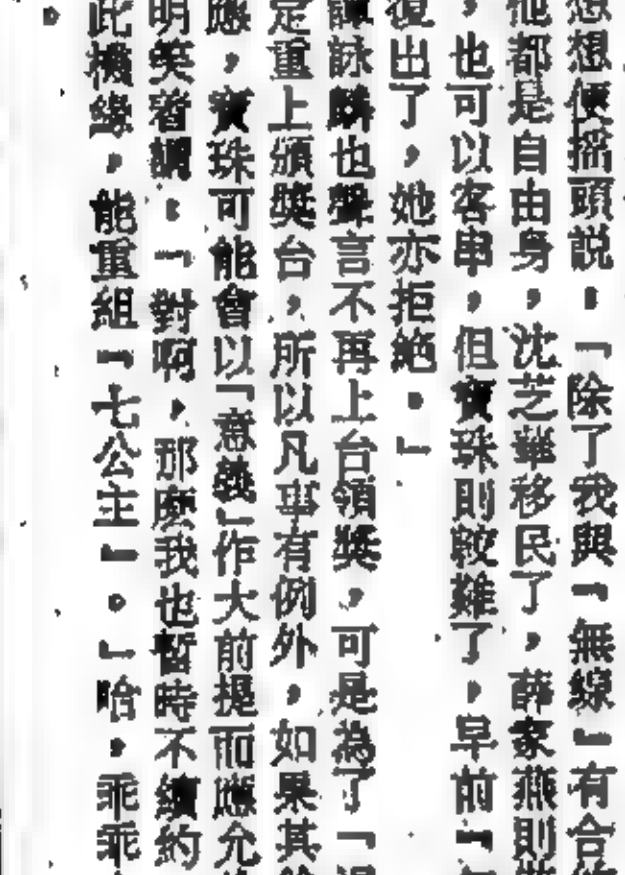 想想便搖頭說：「除了我與「無線」有合
他都是自由身，沈芝華移民了，薛家燕則
，也可以客串，但寶珠則較難了，早前「
復出了，她亦拒絕。」
詠麟也聲言不再上台領獎，可是為了「
定重上頒獎台，所以凡事有例外，如果其
應，寶珠可能會以「意義」作大前提而應允
明笑者調：「對啊，那麼我也暫時不續約
此機緣，能重組「七公主」。」哈，乖乖